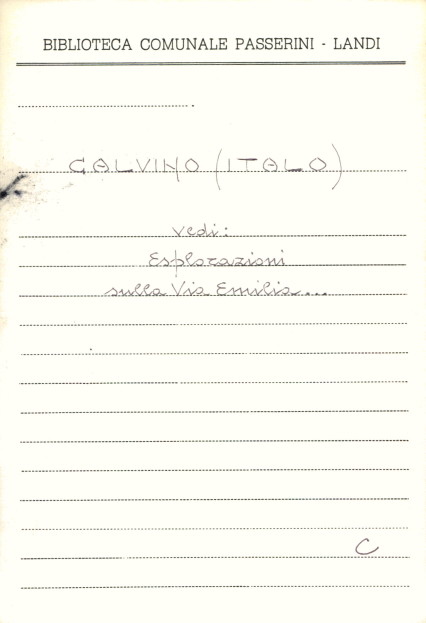 BIBLIOTECA COMUNALE PASSERINI - LANDI
CALVINO (ITALO)
vedi:
Esplorazioni
sulla Via Emilia...
C